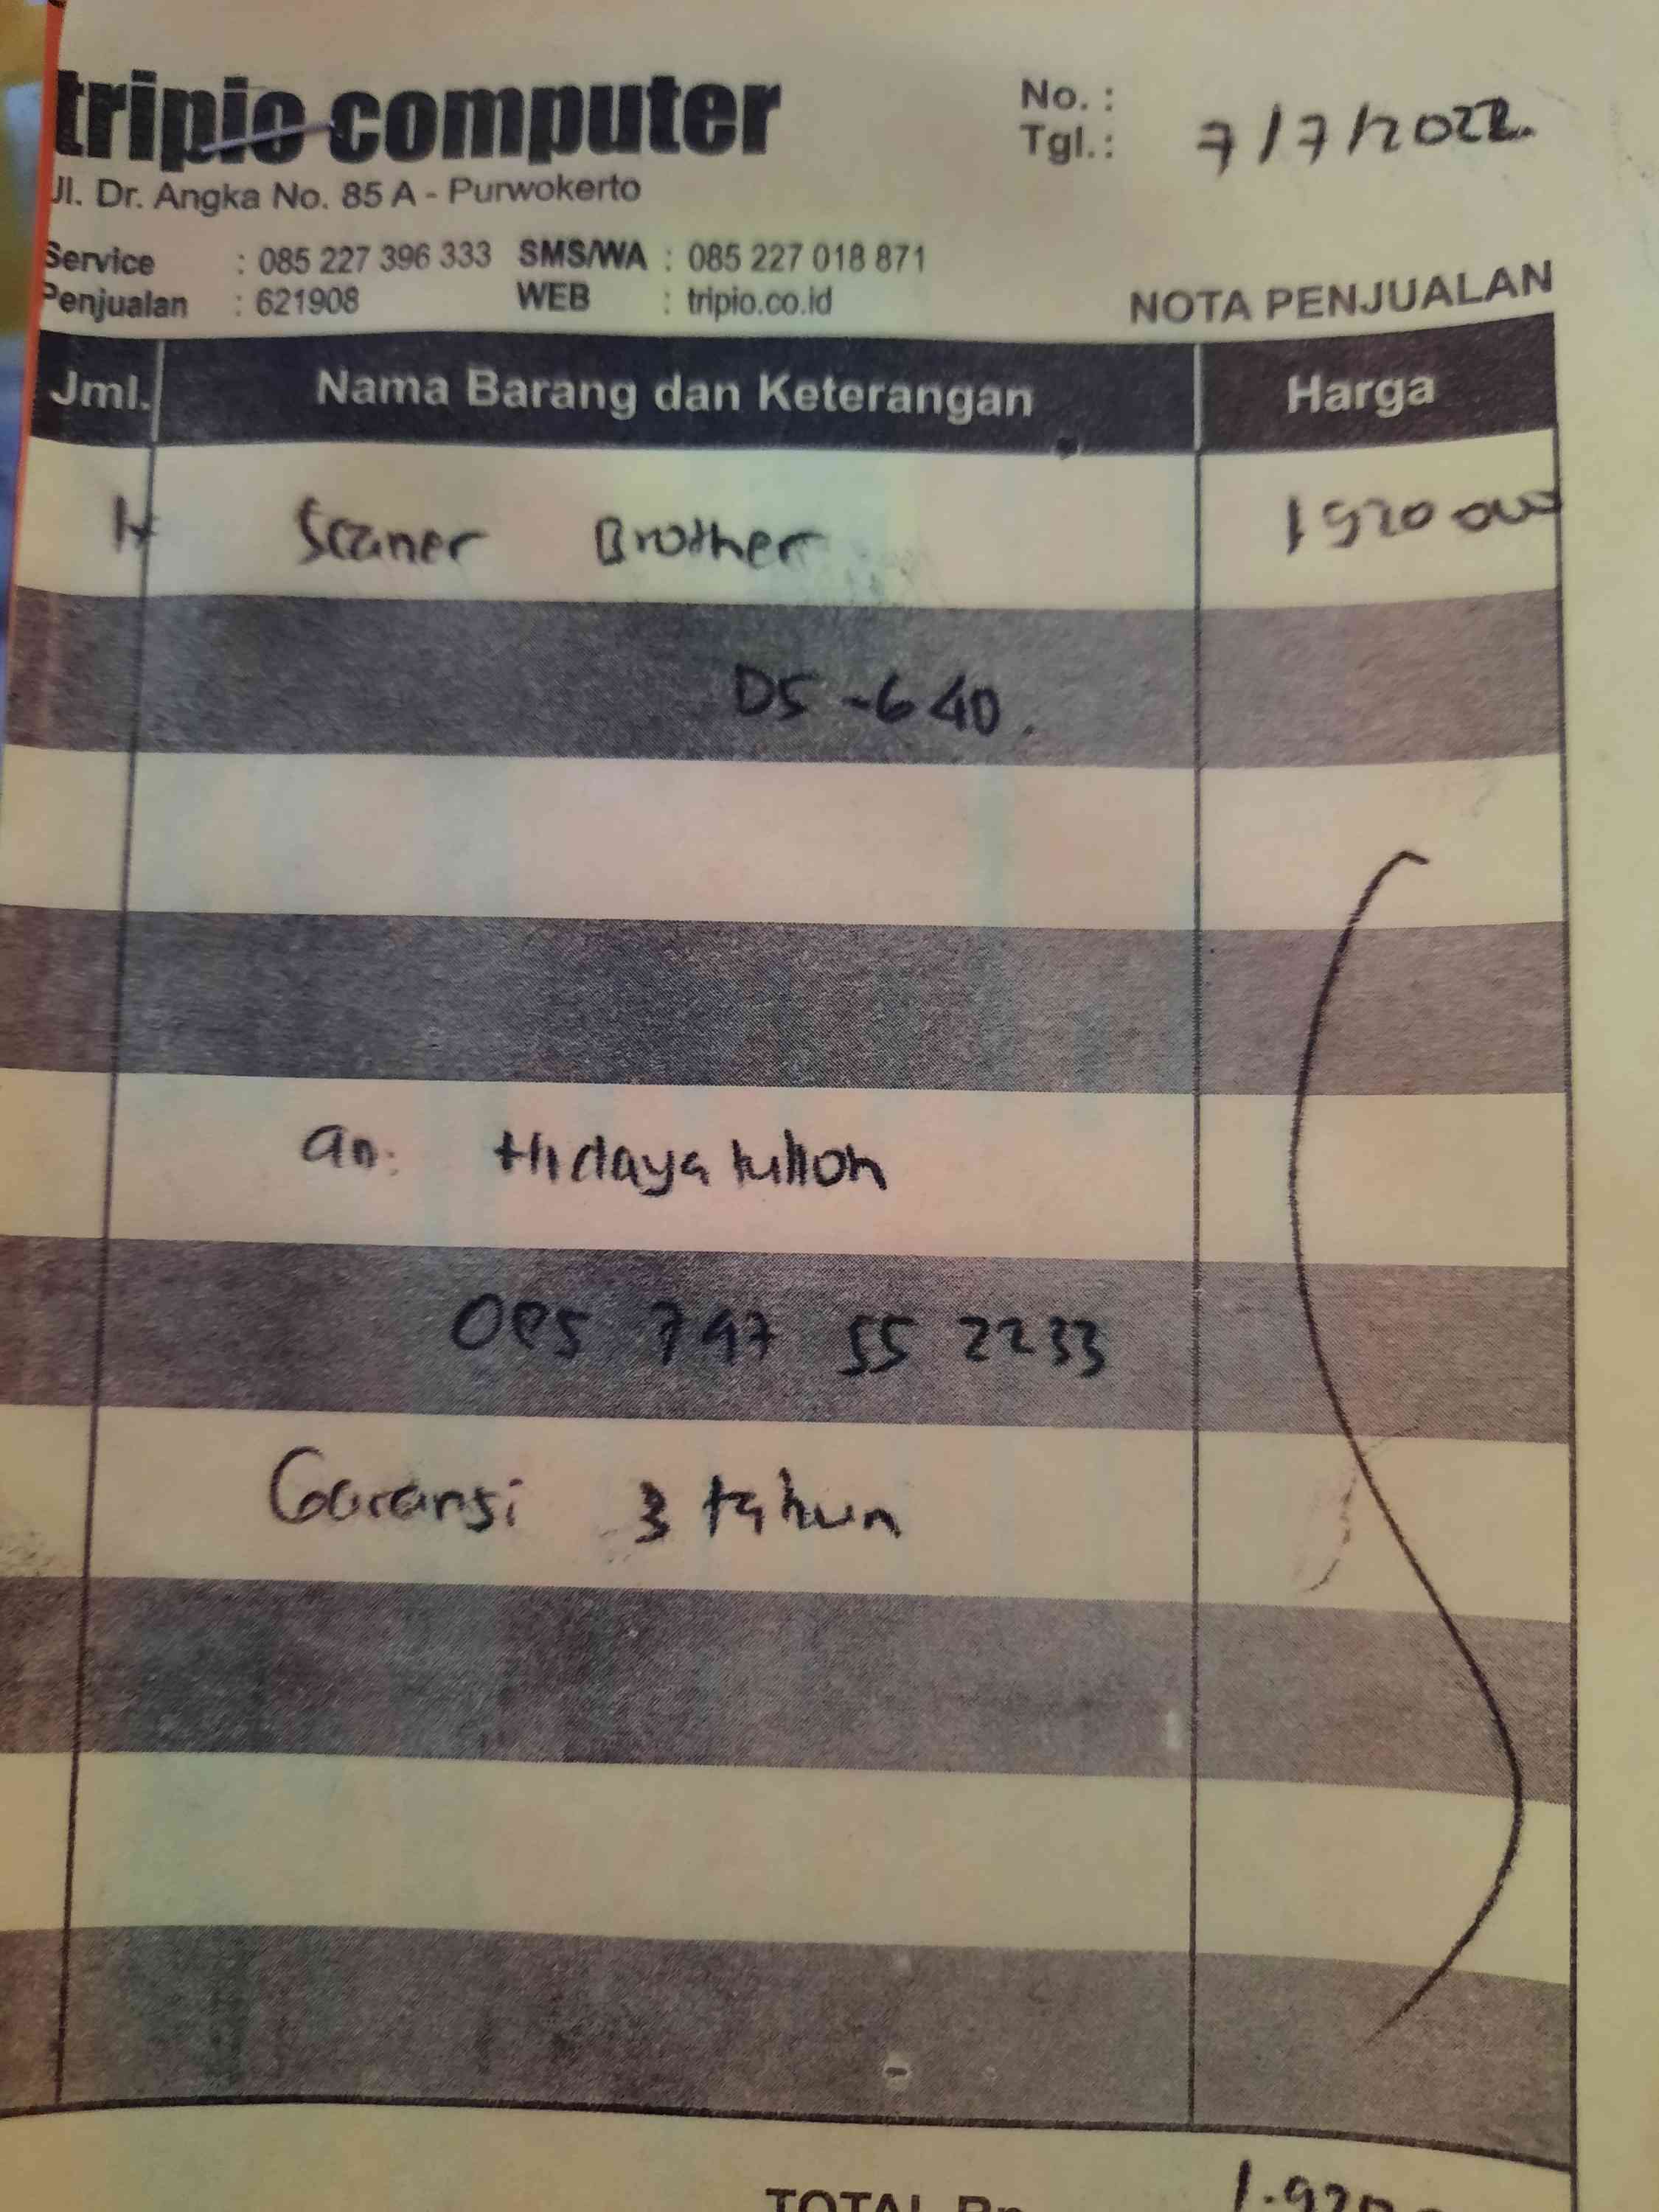 tripio computer
Jl. Dr. Angka No. 85 A - Purwokerto
No. :
Tgl. : 7/7/2022
Service : 085 227 396 333 SMS/WA : 085 227 018 871
Penjualan : 621908 WEB : tripio.co.id
NOTA PENJUALAN
Jml. Nama Barang dan Keterangan Harga
1 Scaner Brother 1920 000
DS-640.
an: Hidayatulloh
085 747 55 2233
Garansi 3 tahun
TOTAL Rp 1.920